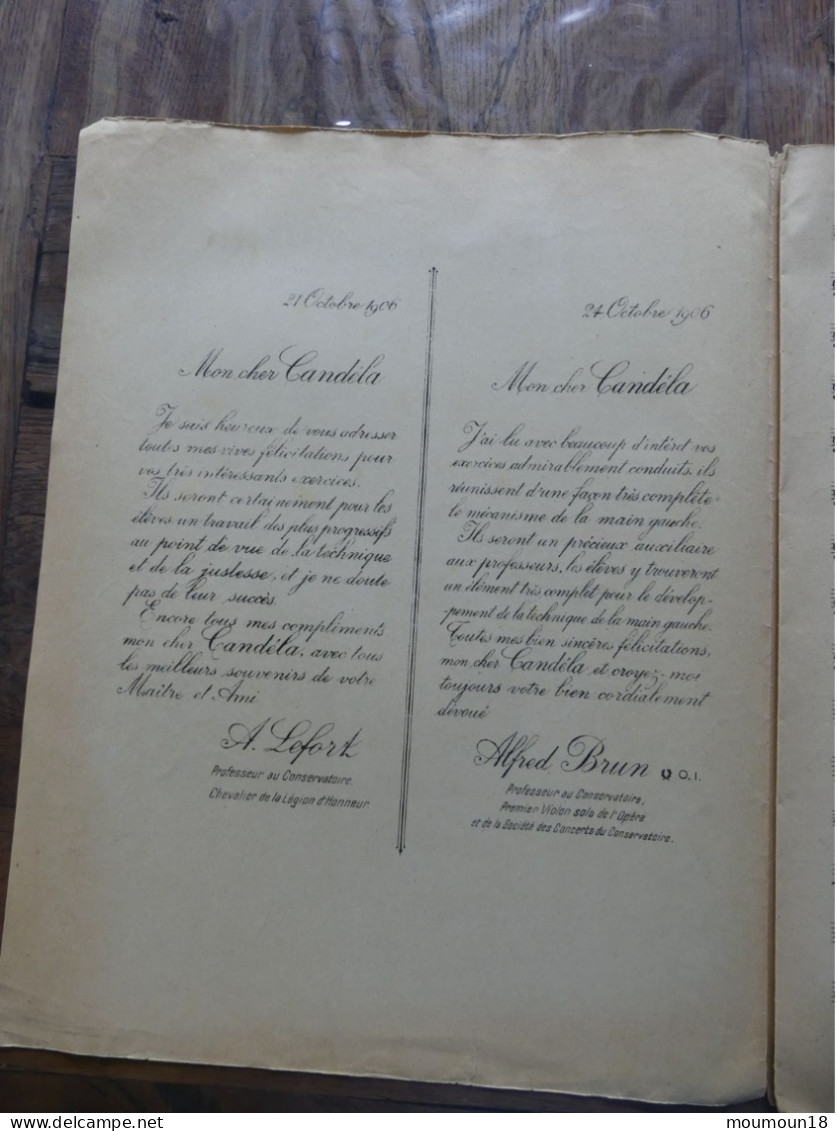 21 Octobre 1906
Mon cher Candéla
Je suis heureux de vous adresser
toutes mes vives félicitations pour
vos très intéressants exercices.
Ils seront certainement pour les
élèves un travail des plus progressifs
au point de vue de la technique
et de la justesse, et je ne doute
pas de leur succès.
Encore tous mes compliments
mon cher Candéla, avec tous
les meilleurs souvenirs de votre
Maître et Ami
A. Lefort
Professeur au Conservatoire.
Chevalier de la Légion d'Honneur.
24 Octobre 1906
Mon cher Candéla
J'ai lu avec beaucoup d'intérêt vos
exercices admirablement conduits, ils
réunissent d'une façon très complète
le mécanisme de la main gauche.
Ils seront un précieux auxiliaire
aux professeurs, les élèves y trouveront
un élément très complet pour le dévelop-
-pement de la technique de la main gauche.
Toutes mes bien sincères félicitations,
mon cher Candéla et croyez-moi
toujours votre bien cordialement
dévoué
Alfred Brun O.I.
Professeur au Conservatoire,
Premier Violon solo de l'Opéra
et de la Société des Concerts du Conservatoire.
www.delcampe.net
moumoun18